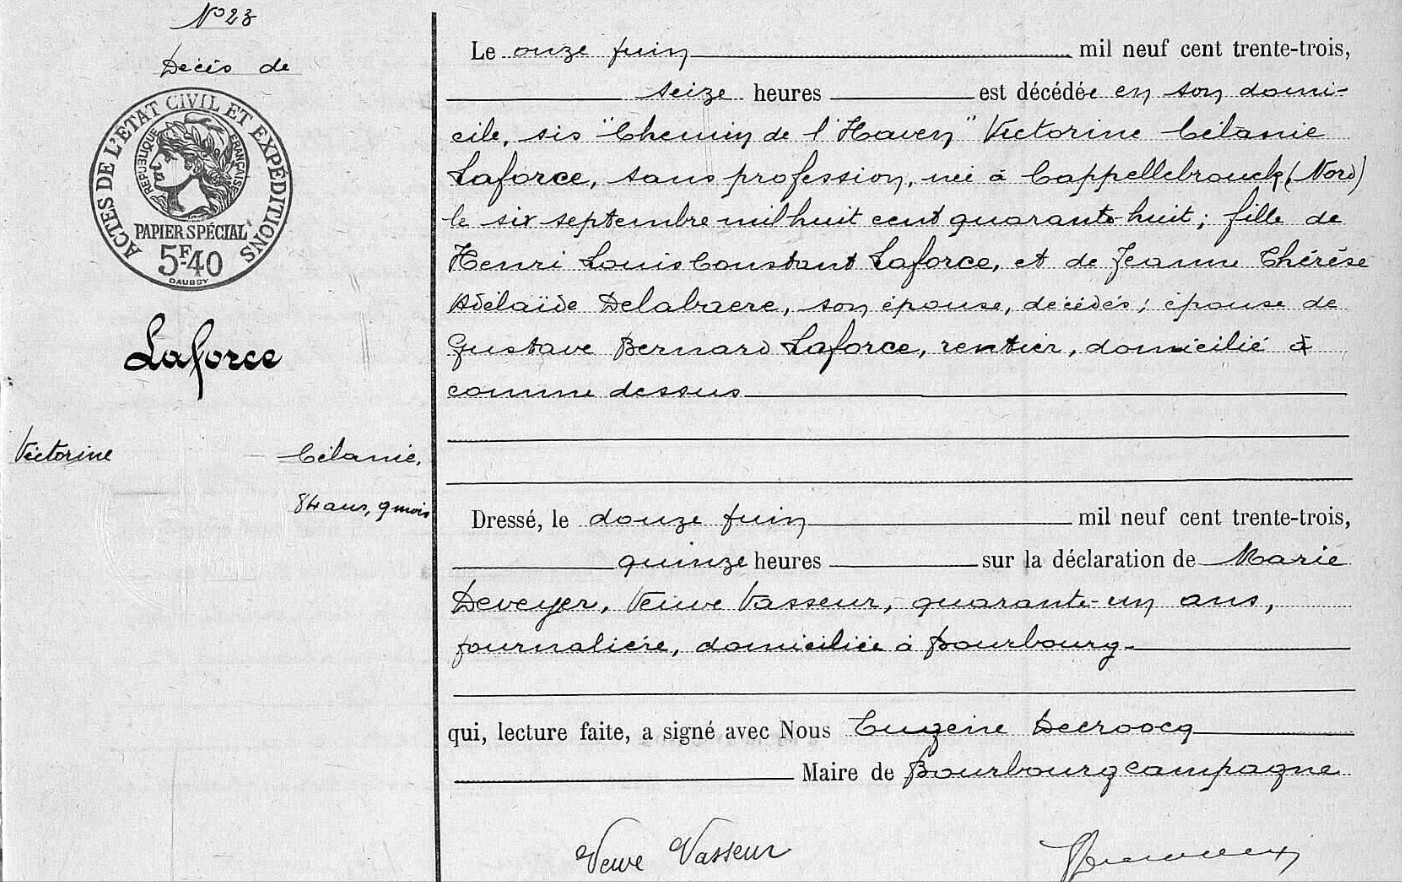 N° 23
Décès de
ACTES DE L'ÉTAT CIVIL ET EXPÉDITIONS
RÉPUBLIQUE FRANÇAISE
PAPIER SPÉCIAL
5F40
DAUSSY
Laforce
Victorine Célanie,
84 ans, 9 mois
Le onze juin mil neuf cent trente-trois,
seize heures est décédée en son domi-
cile, sis "Chemin de l'Haven" Victorine Célanie
Laforce, sans profession, née à Cappellebrouck (Nord)
le six septembre mil huit cent quarante-huit; fille de
Henri Louis Constant Laforce, et de Jeanne Thérèse
Adélaïde Delabaere, son épouse, décédés; épouse de
Gustave Bernard Laforce, rentier, domicilié
comme dessus
Dressé, le douze juin mil neuf cent trente-trois,
quinze heures sur la déclaration de Marie
Deveyer, Veuve Vasseur, quarante-un ans,
journalière, domiciliée à Bourbourg
qui, lecture faite, a signé avec Nous Eugène Decroocq
Maire de Bourbourg campagne
Veuve Vasseur